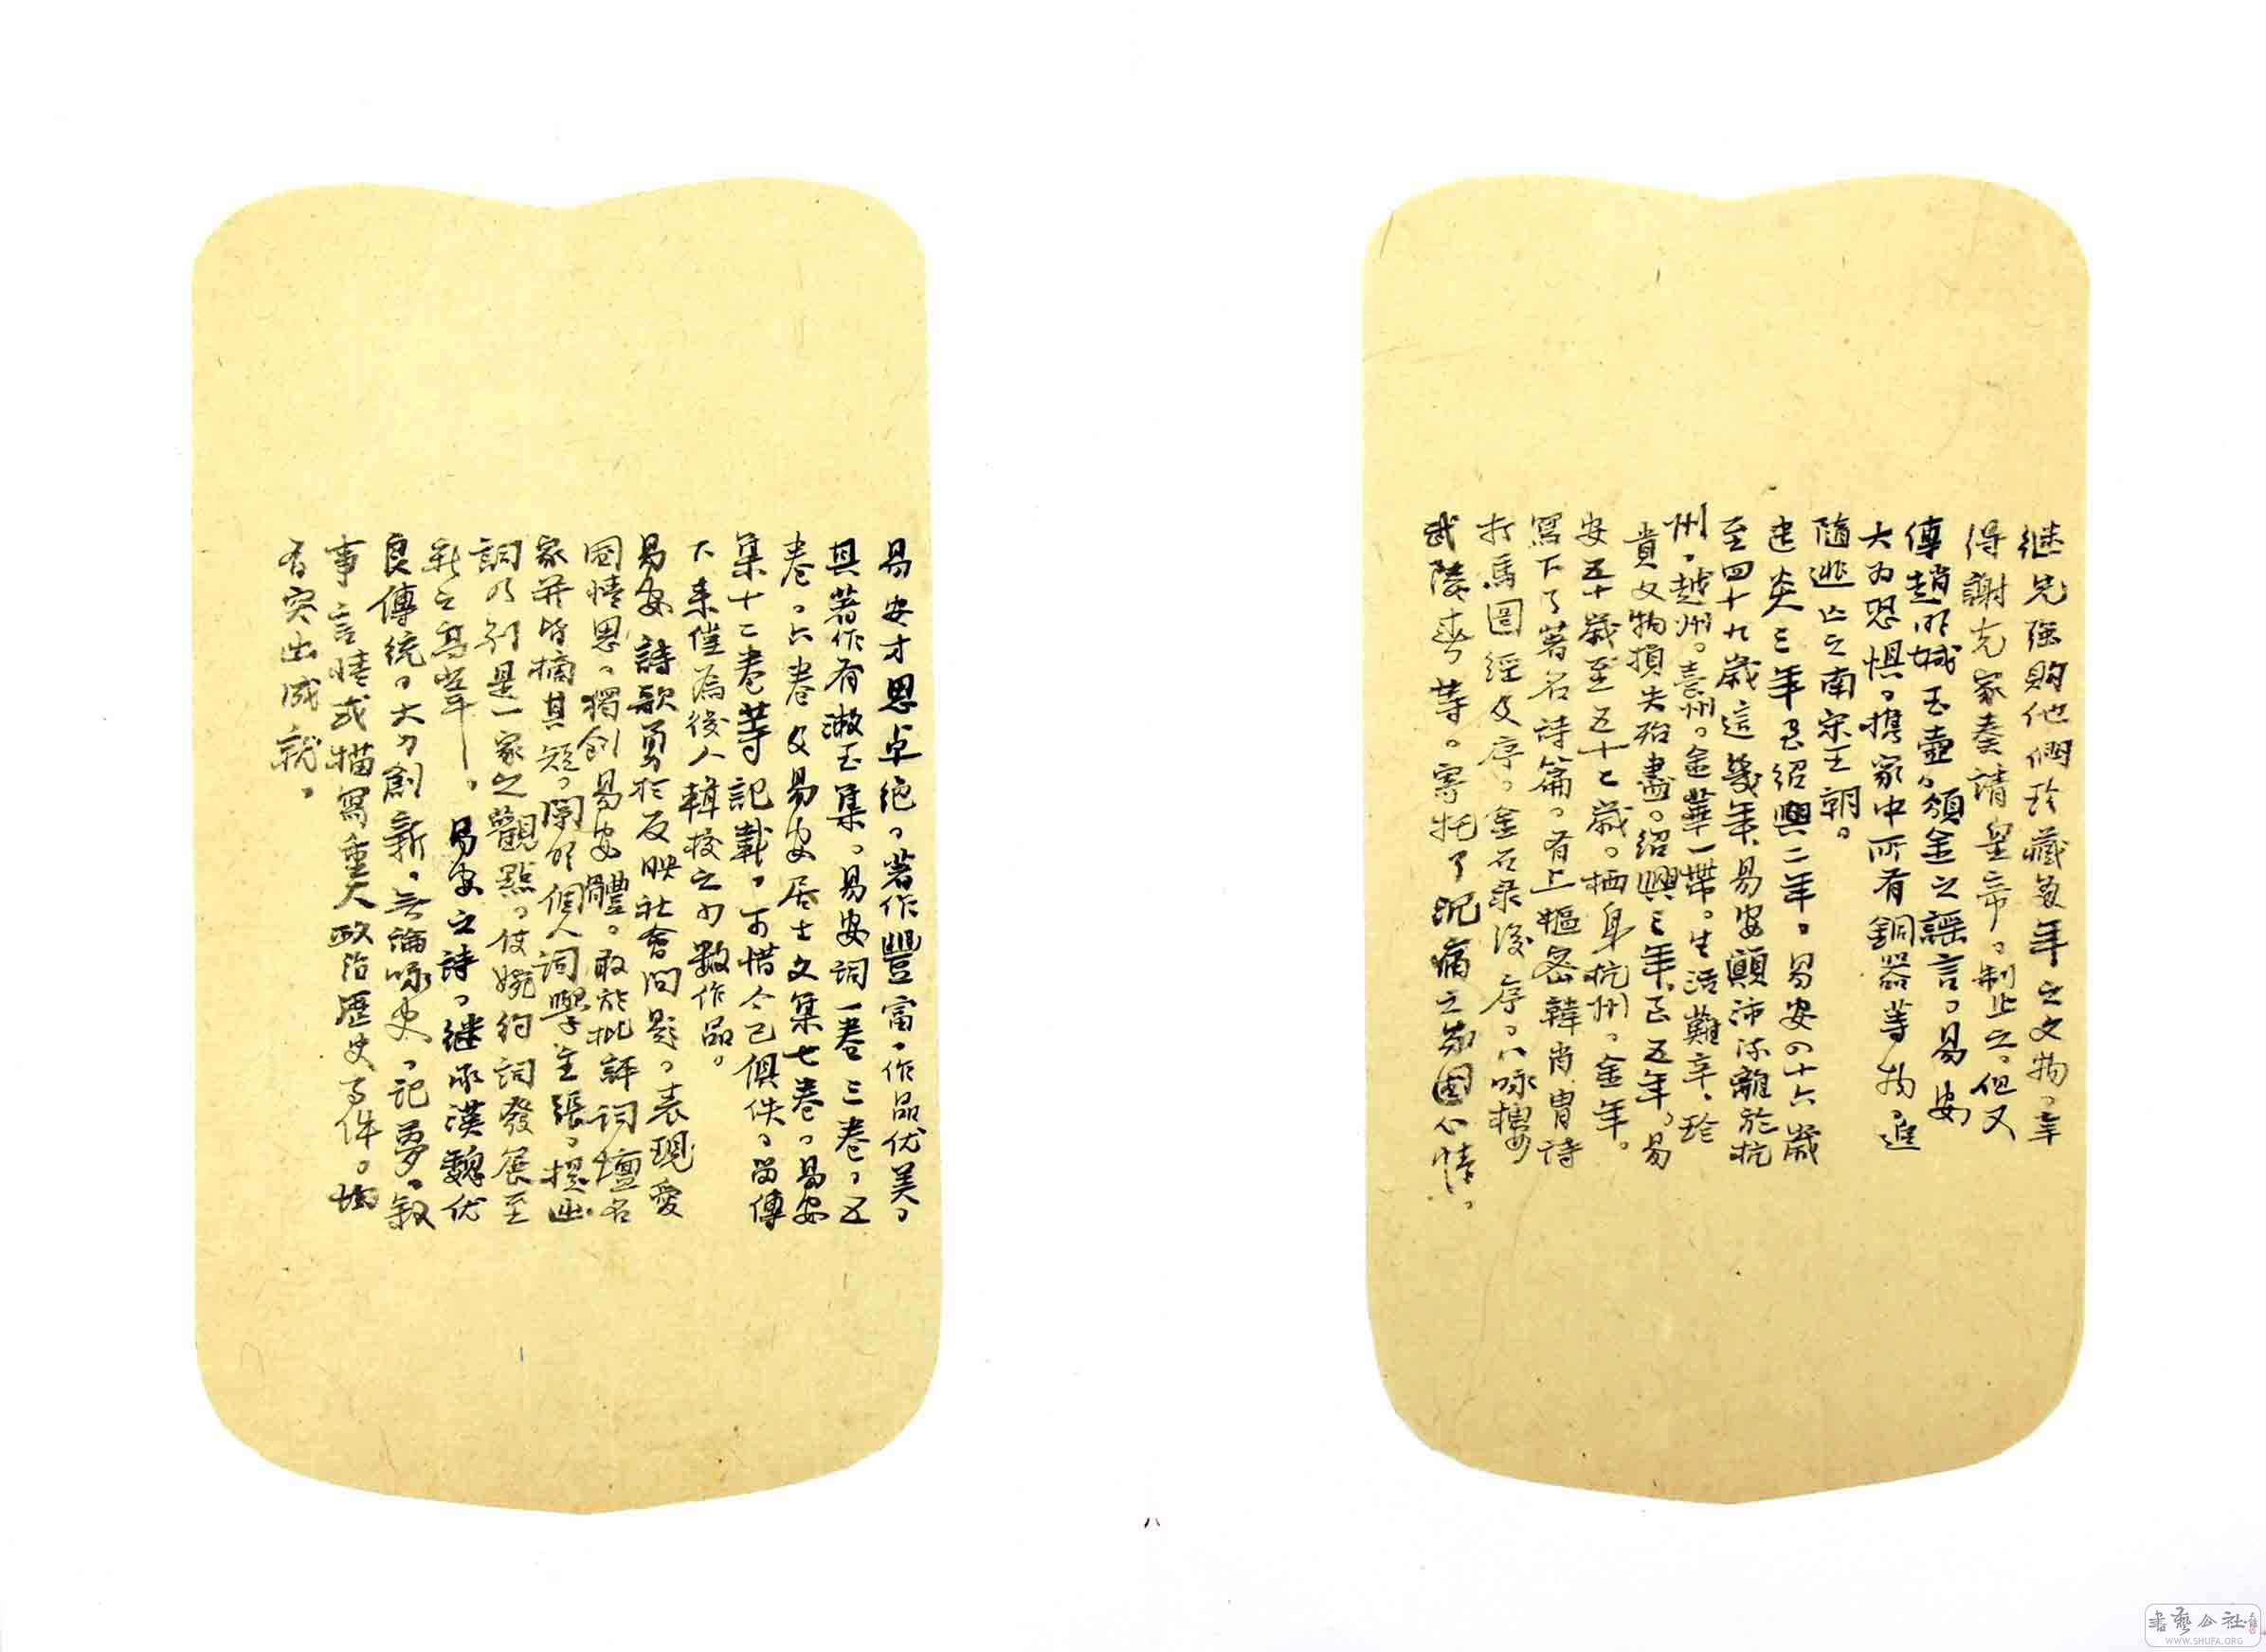 继先强购他們珍藏多年之文物。幸
得謝克家奏請皇帝。制止之。但又
傳趙明诚玉壺。頒金之謡言。易安
大为恐惧。携家中所有銅器等物。追
隨逃亡之南宋王朝。
建炎三年至绍興二年。易安四十六歲
至四十九歲這幾年。易安顛沛流離於杭
州。越州。臺州。金華一帶。生活難辛。珍
貴文物損失殆盡。绍興三年。至五年。易
安五十歲至五十七歲。栖身杭州。金年。
寫下了著名詩篇。有上樞密韓肖胄詩
打馬圖经及序。金石录後序。八咏樓。
武陵春等。寄托了沉痛之家国心情。
易安才思卓绝。著作豐富。作品优美。
其著作有漱玉集。易安詞一卷三卷。五
卷。六卷及易安居士文集七卷。易安
集十二卷等記載。可惜今已俱佚。留傳
下来僅爲後人輯校之少數作品。
易安詩歌勇於反映社會问题。表現愛
國情思。獨創易安體。敢於批評词壇名
家并皆摘其短。闡明個人词學主張。提出
詞乃别是一家之觀點。使婉约詞發展至
新之高峯。易安之詩。继承漢魏优
良傳统。大力創新。无論咏史。记夢。叙
事言情或描寫重大政治歷史事件。均
有突出成就。
書藝公社
WWW.SHUFA.ORG